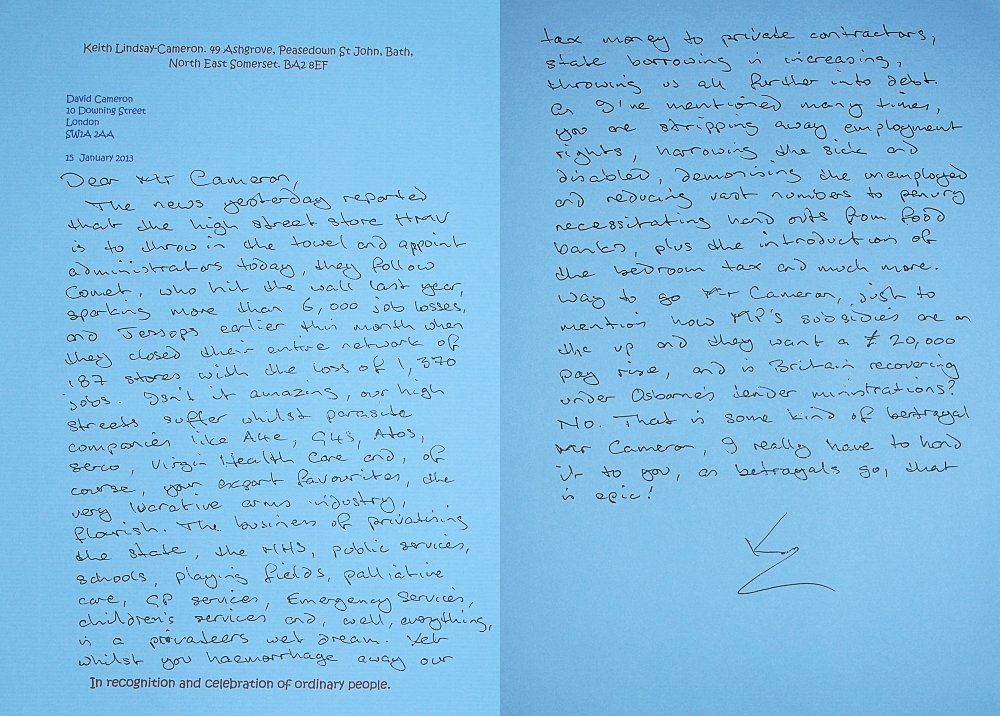 Keith Lindsay-Cameron. 49 Ashgrove, Peasedown St John, Bath,
North East Somerset. BA2 8EF
David Cameron
10 Downing Street
London
SW1A 2AA
15 January 2013
Dear Mr Cameron,
The news yesterday reported
that the high street store HMV
is to throw in the towel and appoint
administrators today, they follow
Comet, who hit the wall last year,
sparking more than 6,000 job losses,
and Jessops earlier this month when
they closed their entire network of
187 stores with the loss of 1,370
jobs. Isn't it amazing, our high
streets suffer whilst parasite
companies like A4e, G4S, Atos,
Serco, Virgin Health Care and, of
course, your export favourites, the
very lucrative arms industry,
flourish. The business of privatising
the state, the NHS, public services,
schools, playing fields, palliative
care, GP services, Emergency Services,
children's services and, well, everything,
is a privateers wet dream. Yet
whilst you haemorrhage away our
In recognition and celebration of ordinary people.
tax money to private contractors,
state borrowing is increasing,
throwing us all further into debt.
As I've mentioned many times,
you are stripping away employment
rights, harrowing the sick and
disabled, demonising the unemployed
and reducing vast numbers to penury
necessitating hand outs from food
banks, plus the introduction of
the bedroom tax and much more.
Way to go Mr Cameron, just to
mention how MP's subsidies are on
the up and they want a £20,000
pay rise, and is Britain recovering
under Osborne's tender ministrations?
No. That is some kind of betrayal
Mr Cameron, I really have to hand
it to you, as betrayals go, that
is epic!